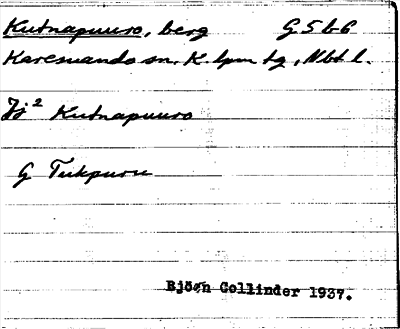 Kutnapuuro, berg G5b6
Karesuando sn. K. lpm tg, Nbt l.
Jj² Kutnapuuro
G Tukpuru
Björn Collinder 1937.